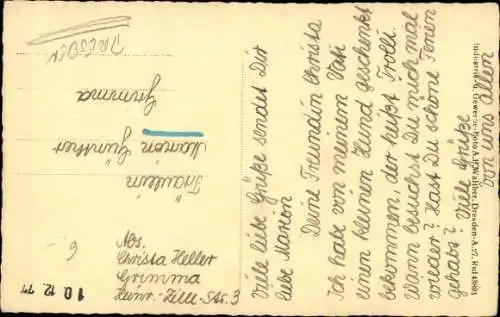 Viele liebe Grüße sendet Dir
liebe Marion
Deine Freundin Christa
Ich habe von meinem Vati
einen kleinen Hund geschenkt
bekommen, der heißt Trolli.
Wann besuchst Du mich mal
wieder? Hast Du schöne Ferien
gehabt? Viele Grüße
von uns allen
Fräulein
Marion Günther
Grimma
DRESDEN
Abs.
Christa Heller
Grimma
Heinr.-Zille-Str. 3
6
10. 12. 77
Industrie- u. Gewerbe-Foto A. P. Walther, Dresden-A. 27, Ruf 48801